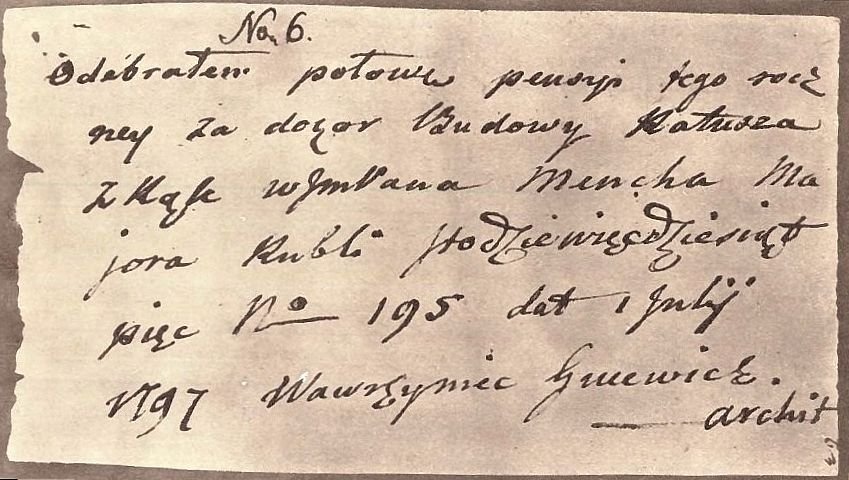 No. 6.
Odebrałem połowę pensyi tego rocz
ney za dozor Budowy Ratusza
z Rąk WJmPana Mencha Ma
jora Rubli stodziewięćdziesiąt
pięc No 195 dat 1 Julij
1797 Wawrzyniec Gucewicz.
archit